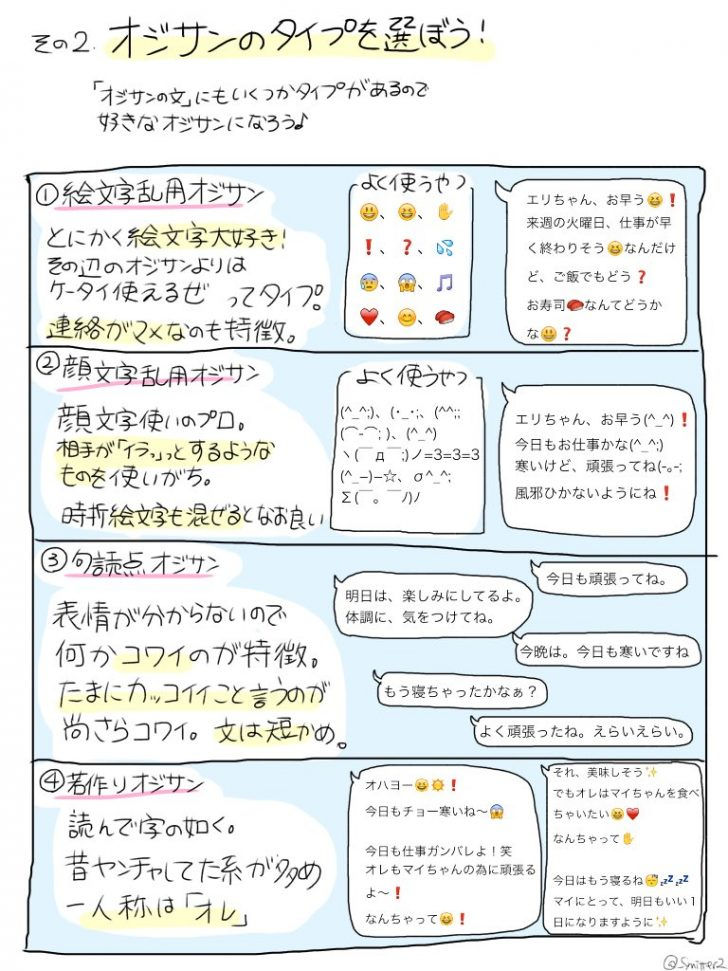 その2. オジサンのタイプを選ぼう!
「オジサンの文」にもいくつかタイプがあるので
好きなオジサンになろう♪
①絵文字乱用オジサン
とにかく絵文字大好き!
その辺のオジサンよりは
ケータイ使えるぜ ってタイプ!
連絡がマメなのも特徴。
よく使うやつ
😃、😆、✋
❗、❓、💦
😰、😱、🎵
❤️、😊、🍣
エリちゃん、お早う😆❗
来週の火曜日、仕事が早
く終わりそう😆なんだけ
ど、ご飯でもどう❓
お寿司🍣なんてどうか
な😃❓
②顔文字乱用オジサン
顔文字使いのプロ。
相手が「イラっ」っとするような
ものを使いがち。
時折絵文字も混ぜるとなお良い
よく使うやつ
(^_^;)、(・_・;、(^^;;
(⌒-⌒; )、(^_^)
ヽ(￣д￣;)ノ=3=3=3
(^_−)−☆、σ^_^;
Σ(￣。￣ﾉ)ﾉ
エリちゃん、お早う(^_^)❗
今日もお仕事かな(^_^;)
寒いけど、頑張ってね(-｡-;
風邪ひかないようにね❗
③句読点オジサン
表情が分からないので
何かコワイのが特徴。
たまにカッコイイこと言うのが
尚さらコワイ。文は短かめ。
今日も頑張ってね。
明日は、楽しみにしてるよ。
体調に、気をつけてね。
今晩は。今日も寒いですね
もう寝ちゃったかなぁ？
よく頑張ったね。えらいえらい。
④若作りオジサン
読んで字の如く。
昔ヤンチャしてた系が多め
一人称は「オレ」
オハヨー😆☀️❗
今日もチョー寒いね〜😱
今日も仕事ガンバレよ！笑
オレもマイちゃんの為に頑張る
よ〜❗
なんちゃって😆❗
それ、美味しそう✨
でもオレはマイちゃんを食べ
ちゃいたい😆❤️
なんちゃって✋
今日はもう寝るね😴💤💤
マイにとって、明日もいい１
日になりますように✨